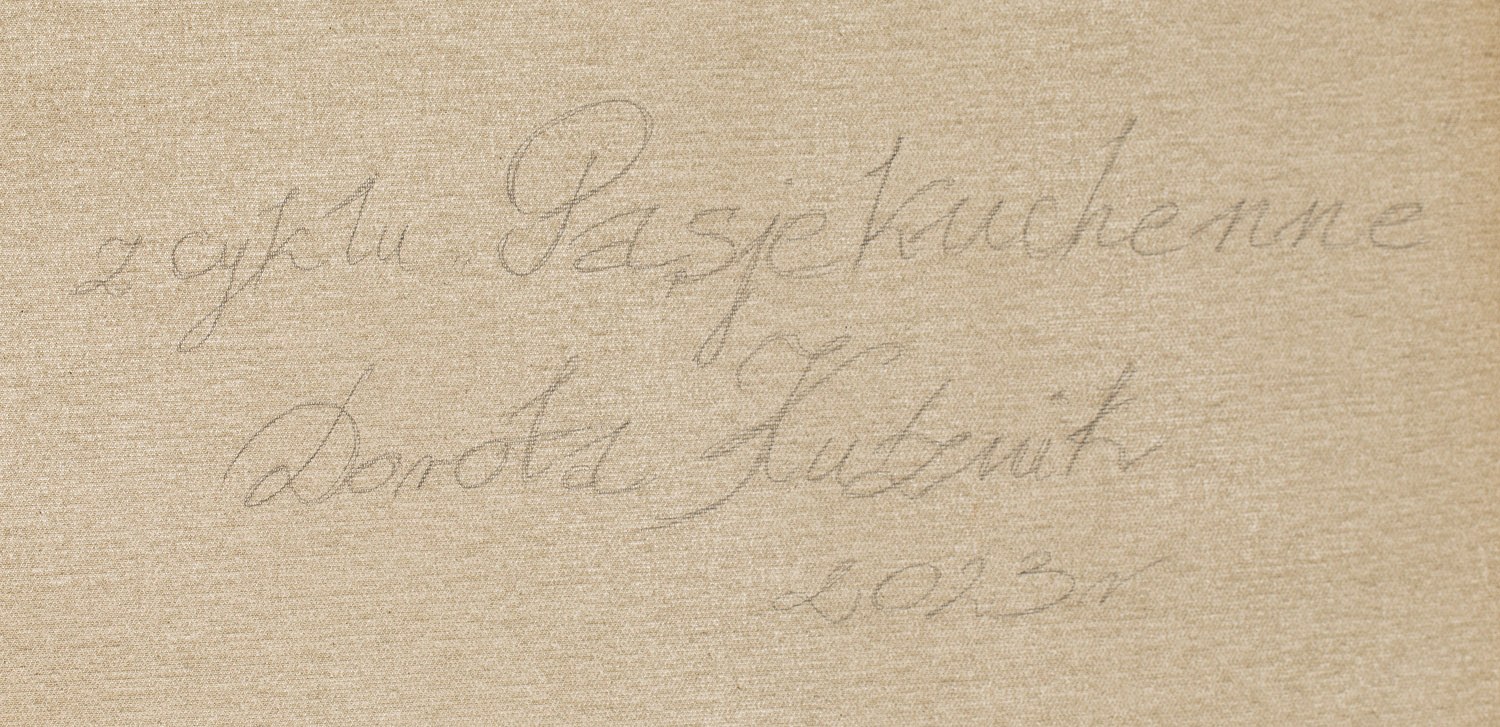 z cyklu „Pasje kuchenne
Dorota Kutsnik
2023 r